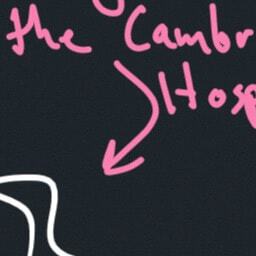 the Cambr
Hosp